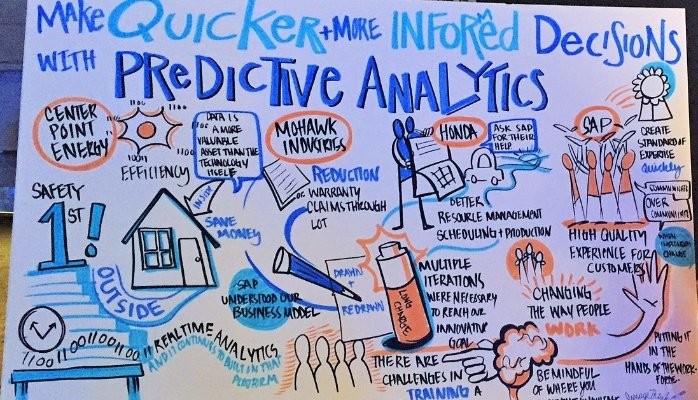 MAKE QUICKER + MORE INFORMED DECISIONS
WITH PREDICTIVE ANALYTICS
CENTER
POINT
ENERGY
EFFICIENCY
SAFETY
1ST!
OUTSIDE
INSIDE
DATA IS
A MORE
VALUABLE
ASSET THAN THE
TECHNOLOGY
ITSELF
SAVE
MONEY
MOHAWK
INDUSTRIES
REDUCTION
OF WARRANTY
CLAIMS THROUGH
LOT
SAP
UNDERSTOOD OUR
BUSINESS MODEL
REALTIME ANALYTICS
AND IT CONTINUES TO BUILD ON THAT
PLATFORM
HONDA
ASK SAP
FOR THEIR
HELP
BETTER
RESOURCE MANAGEMENT
SCHEDULING + PRODUCTION
DRAWN
+
REDRAWN
LONG
CHARGE
MULTIPLE
ITERATIONS
WERE NECESSARY
TO REACH OUR
INNOVATIVE
GOAL
THERE ARE
CHALLENGES IN
TRAINING A
SAP
CREATE
STANDARD OF
EXPERTISE
QUICKLY
COMMUNICATE
OVER
COMMUNICATE
HIGH QUALITY
EXPERIENCE FOR
CUSTOMERS
CHANGING
THE WAY PEOPLE
WORK
PUTTING IT
IN THE
HANDS OF THE WORK-
FORCE.
BE MINDFUL
OF WHERE YOU